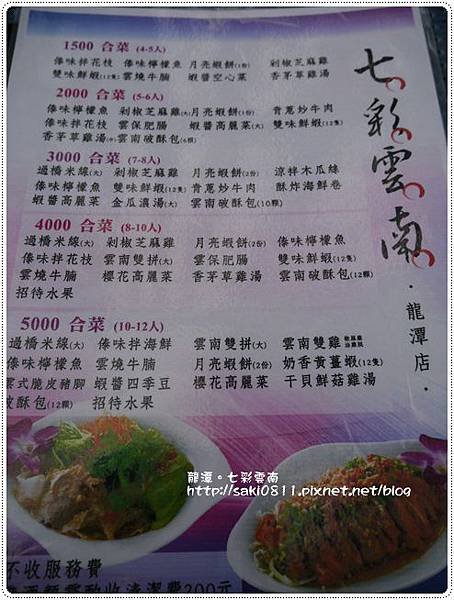 1500 合菜 (4-5人)
傣味拌花枝 傣味檸檬魚 月亮蝦餅(1份) 剁椒芝麻雞
雙味鮮蝦(12隻) 雲燒牛腩 蝦醬空心菜 香茅草雞湯
2000 合菜 (5-6人)
傣味檸檬魚 剁椒芝麻雞(大) 月亮蝦餅(1份) 青蔥炒牛肉
傣味拌花枝 雲保肥腸 蝦醬高麗菜(大) 雙味鮮蝦(12隻)
香茅草雞湯(中) 雲南破酥包(6顆)
3000 合菜 (7-8人)
過橋米線(大) 剁椒芝麻雞 月亮蝦餅(2份) 涼拌木瓜絲
傣味檸檬魚 雙味鮮蝦(12隻) 青蔥炒牛肉 酥炸海鮮卷
蝦醬高麗菜 金瓜滇湯(大) 雲南破酥包(10顆)
4000 合菜 (8-10人)
過橋米線(大) 剁椒芝麻雞 月亮蝦餅(2份) 傣味檸檬魚
傣味拌花枝 雲南雙拼(大) 雲保肥腸 雙味鮮蝦(12隻)
雲燒牛腩 櫻花高麗菜 香茅草雞湯 雲南破酥包(12顆)
招待水果
5000 合菜 (10-12人)
過橋米線(大) 傣味拌海鮮 雲南雙拼(大) 雲南雙雞
傣味檸檬魚 雲燒牛腩 月亮蝦餅(2份) 奶香黃薑蝦(12隻)
雲式脆皮豬腳 蝦醬四季豆 櫻花高麗菜 干貝鮮菇雞湯
破酥包(12顆) 招待水果
七彩雲南
·龍潭店·
龍潭。七彩雲南
http://saki0811.pixnet.net/blog
不收服務費
酌收清潔費200元